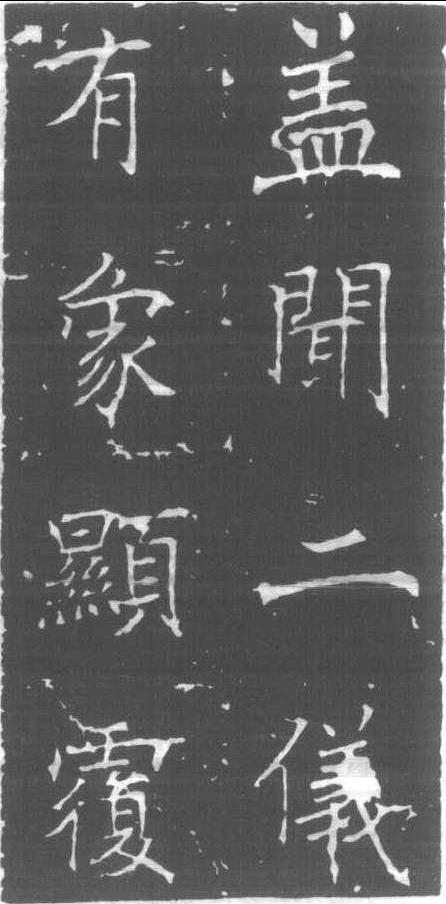 盖聞二儀
有象顯覆